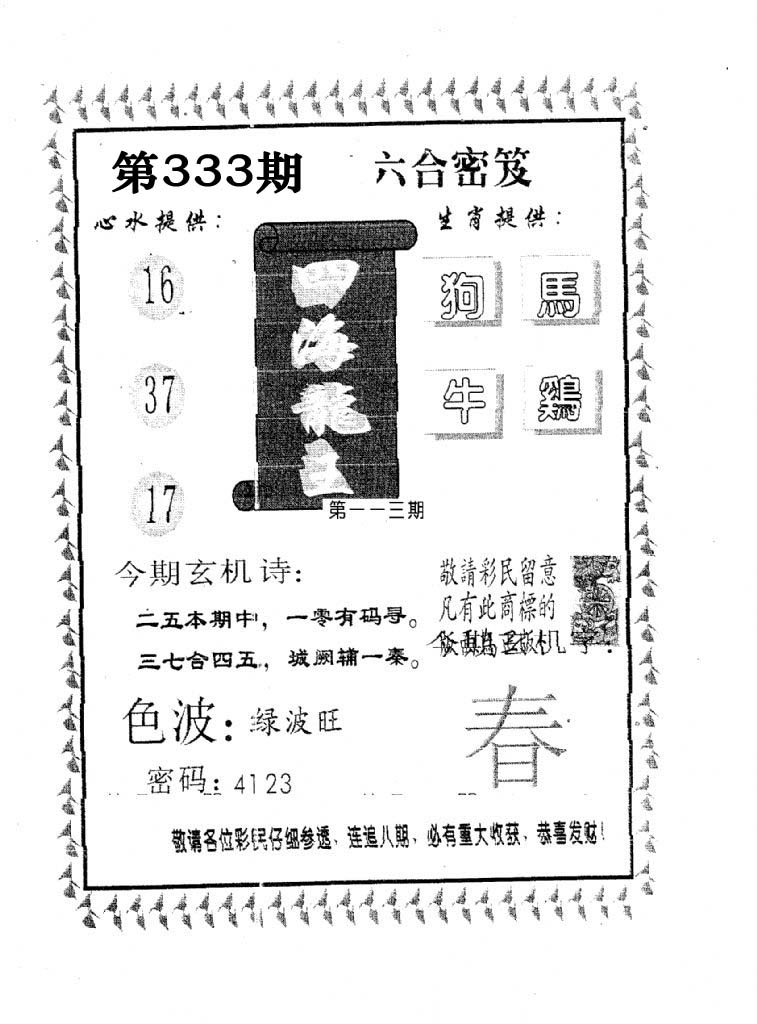 第333期 六合密笈
心水提供： 生肖提供：
16
37
17
四海龍
第一一三期
狗 馬
牛 鷄
今期玄机诗：
二五本期中，一零有码寻。
三七合四五，城阙辅一秦。
敬請彩民留意
凡有此商標的
色波：绿波旺
密码：4123
春
敬请各位彩民仔细参透、连追八期、必有重大收获、恭喜发财！